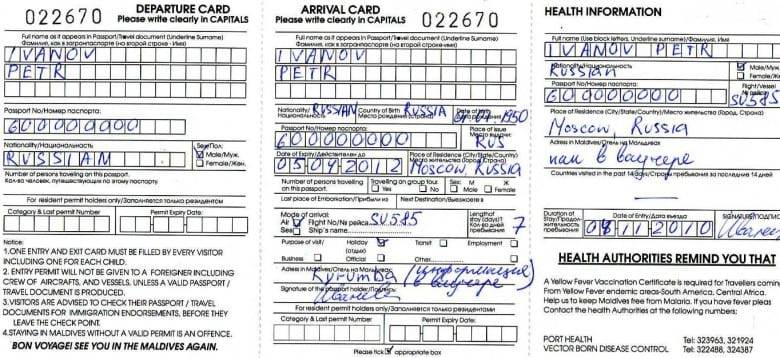 DEPARTURE CARD
Please write clearly in CAPITALS
022670
Full name as it appears in Passport/Travel document (Underline Surname)
Фамилия, как в загранпаспорте (на второй строке - Имя)
IVANOV
PETR
Passport No/Номер паспорта:
600000000
Nationality/Национальность
RUSSIAN
Sex/Пол:
Male/Муж.
Female/Жен.
Number of persons travelling on this passport.
Кол-во человек, путешествующих по этому паспорту.
For resident permit holders only/Заполняется только резидентом
Category & Last permit Number
Permit Expiry Date:
Notice:
1.ONE ENTRY AND EXIT CARD MUST BE FILLED BY EVERY VISITOR
INCLUDING ONE FOR EACH CHILD.
2. ENTRY PERMIT WILL NOT BE GIVEN TO A FOREIGNER INCLUDING
CREW OF AIRCRAFTS, AND VESSELS, UNLESS A VALID PASSPORT /
TRAVEL DOCUMENT IS PRODUCED.
3.VISITORS ARE ADVISED TO CHECK THEIR PASSPORT / TRAVEL
DOCUMENTS FOR IMMIGRATION ENDORSEMENTS, BEFORE THEY
LEAVE THE CHECK POINT.
4.STAYING IN MALDIVES WITHOUT A VALID PERMIT IS AN OFFENCE.
BON VOYAGE! SEE YOU IN THE MALDIVES AGAIN.
ARRIVAL CARD
Please write clearly in CAPITALS
022670
Full name as it appears in Passport/Travel document (Underline Surname)
Фамилия, как в загранпаспорте (на второй строке-Имя)
IVANOV
PETR
Nationality/ RUSSIAN Country of Birth RUSSIA Date of Birth
Национальность Место рождения (страна) 01.01.1950
Passport No/Номер паспорта:
600000000
Place of Issue
RUS
Date of Expiry/Действителен до
05042012
Place of Residence (City/State/Country)
Место жительства (Город, Страна)
Moscow, RUSSIA
Number of persons travelling on this passport.
Travelling on group tour:
Yes No
Sex: М Ж
Male Female
Last place of Embarkation/Прибыли из
Next Destination/Выезжаете в
Mode of arrival:
Air Flight No/№ рейса SU585
Sea Ship's name
Length of stay (days)?
Кол-во дней пребывания 7
Purpose of visit/ Holiday (отдых) Transit Employment
Business Official Other
Adress in Maldives/Отель на Мальдивах:
Kurumba (информация в ваучере)
Signature of the passport holder/Подпись:
For resident permit holders only/Заполняется только резидентом
Category & Last permit Number
Permit Expiry Date:
Please tick appropriate box
HEALTH INFORMATION
Full name (Use block letters, Underline Surname)/Фамилия, Имя
IVANOV PETR
Nationality/Национальность
Russian
Male/Муж.
Female/Жен.
Passport No/Номер паспорта:
600000000
Flight/Vessel
№ рейса
SU585
Place of Residence (City/State/Country)/Место жительства (Город, Страна)
Moscow, Russia
Adress in Maldives/Отель на Мальдивах
как в ваучере
Countries visited in the past 14 days/Страны пребывания за последние 14 дней
Duration of Stay/Продолжительность пребывания
Date of Entry/Дата въезда
08 11 2010
HEALTH AUTHORITIES REMIND YOU THAT
A Yellow Fever Vaccination Certificate is required for Travellers coming
From Yellow Fever endemic areas-South America, Central Africa.
Help us to keep Maldives free from Malaria. If you have fever pleas
Contact the Health Authorities at the following numbers:
PORT HEALTH Tel: 323963, 321924
VECTOR BORN DISEASE CONTROL Tel: 322488, 324387